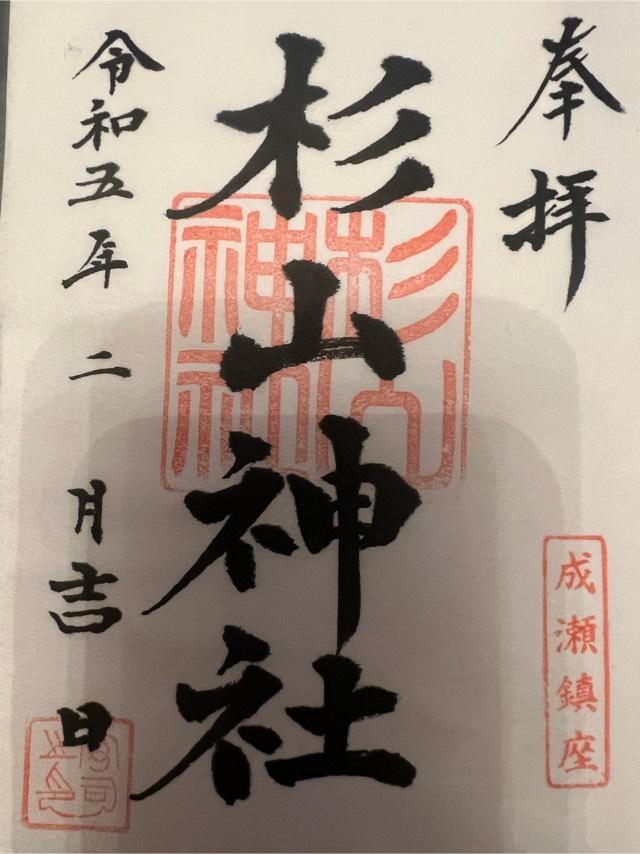 奉拝
成瀬鎮座
杉山神社
杉山神社
令和五年二月吉日